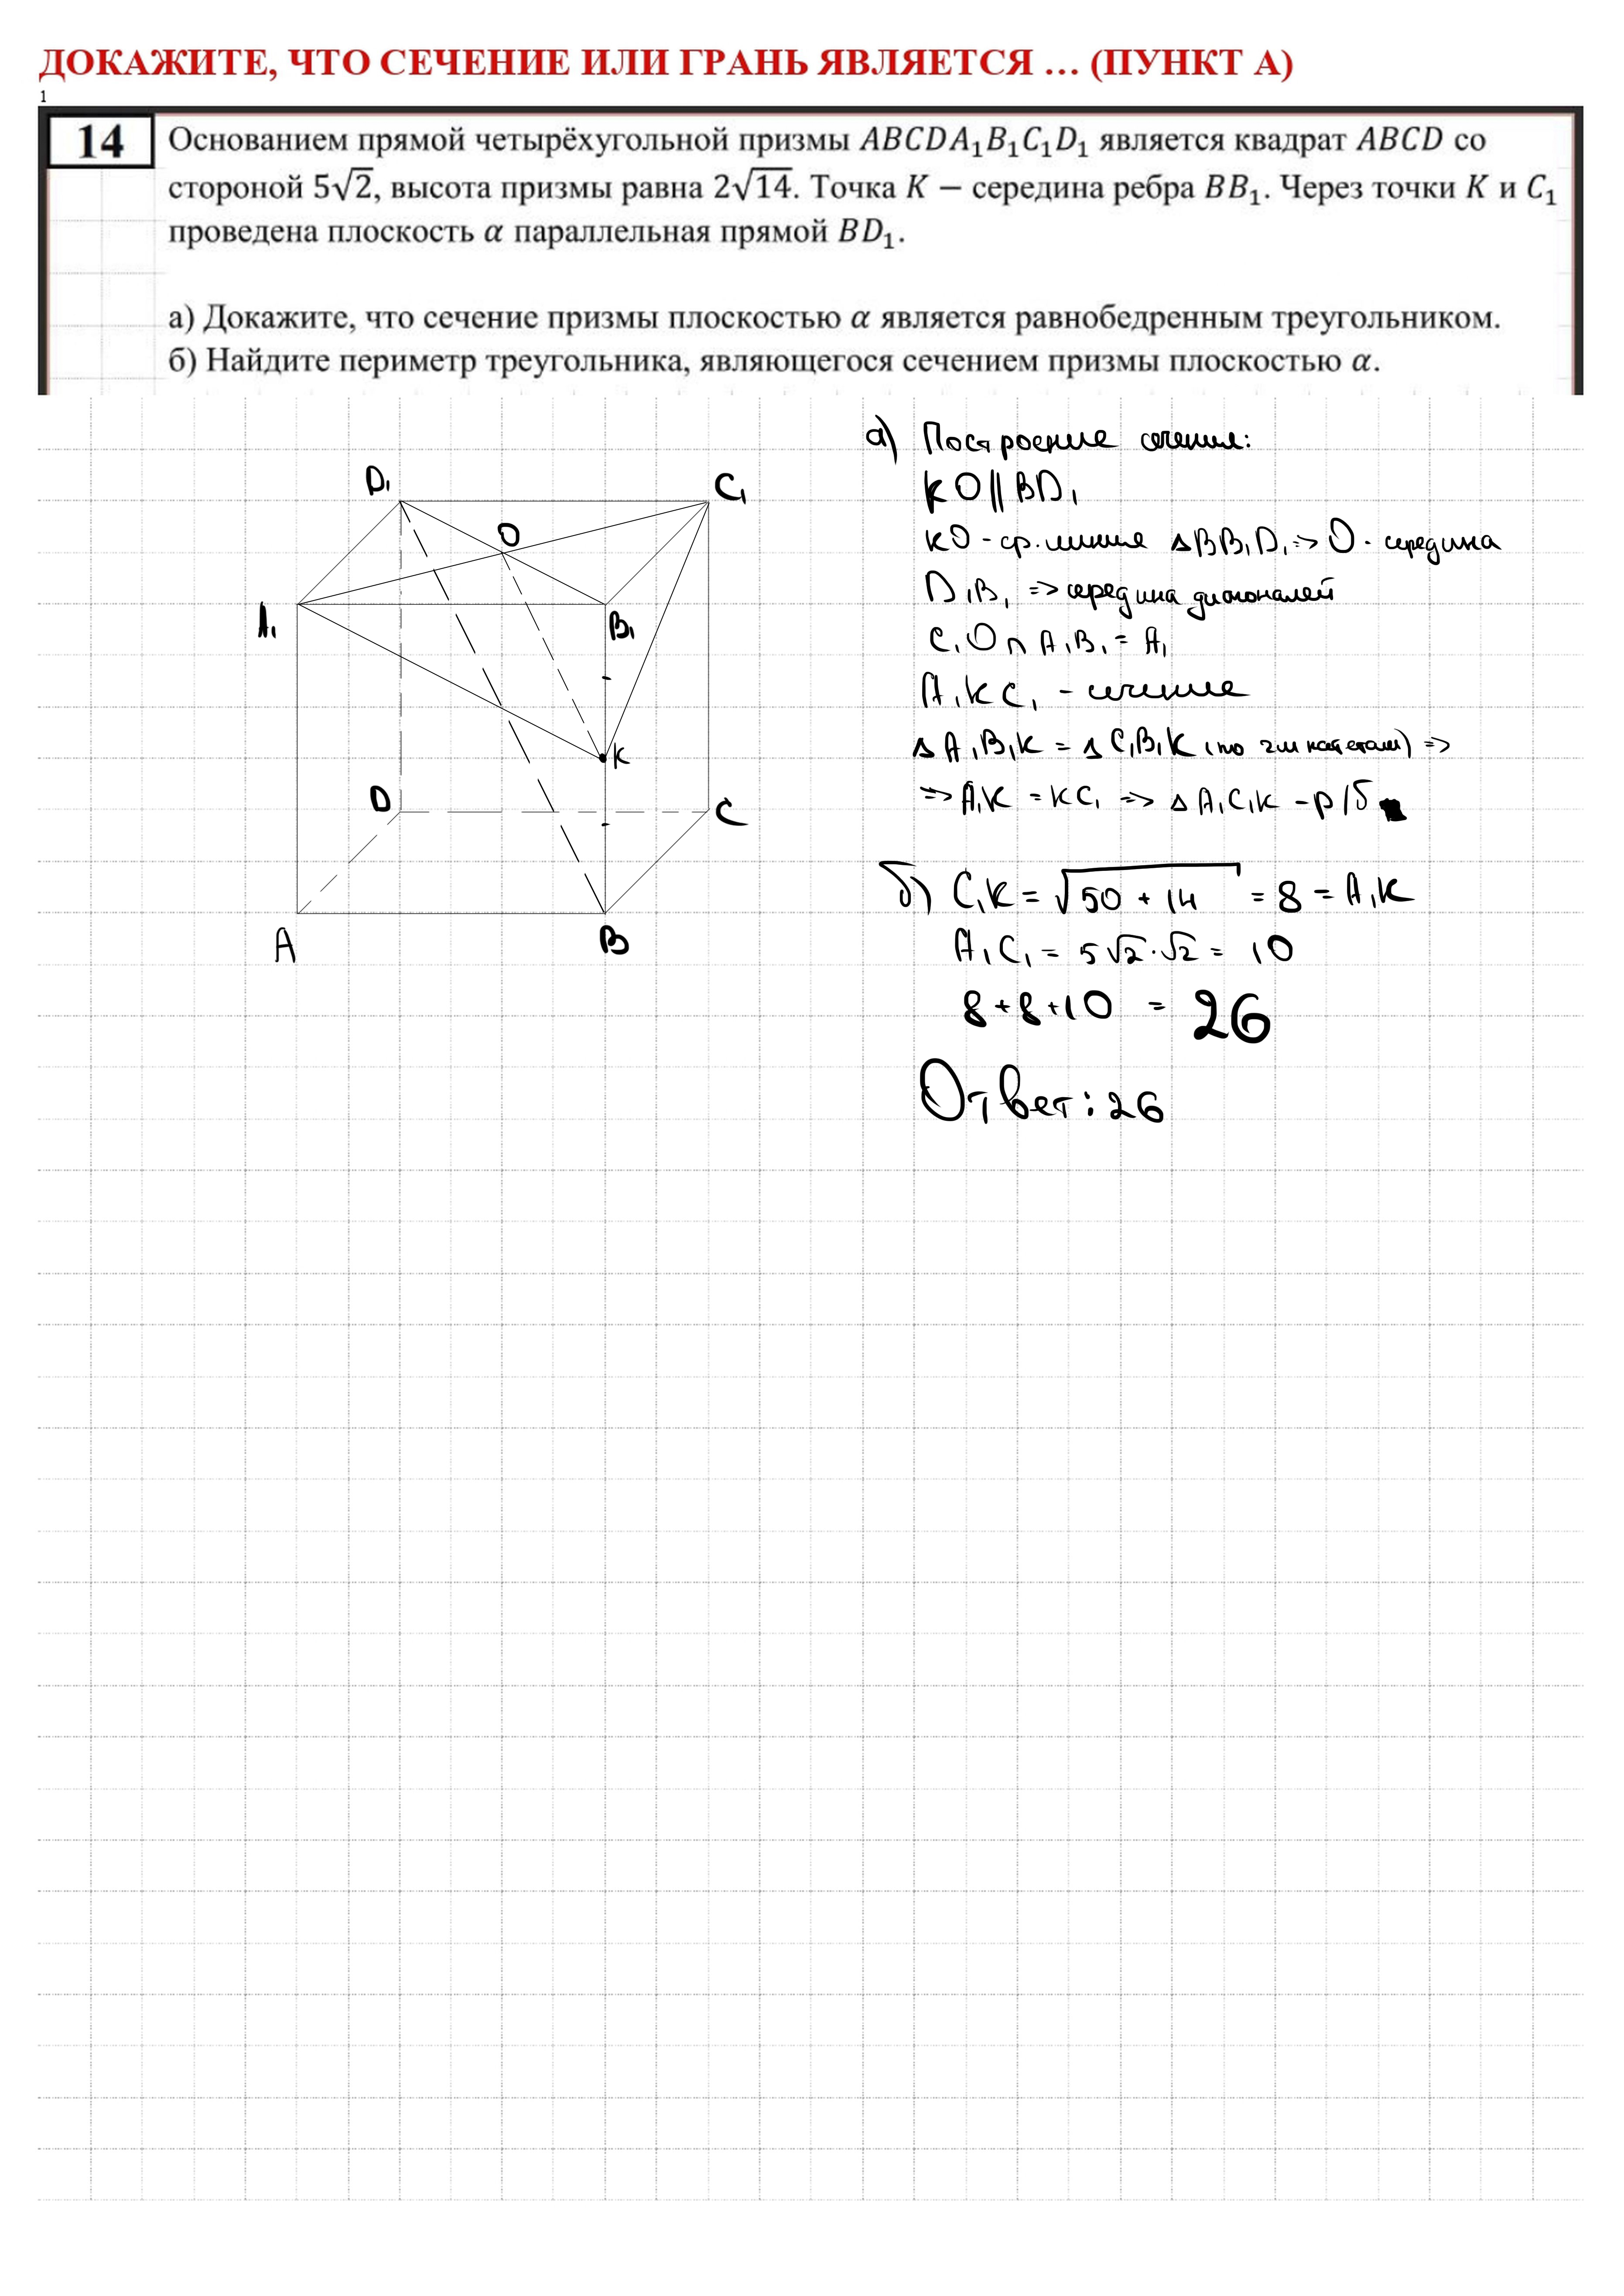 ДОКАЖИТЕ, ЧТО СЕЧЕНИЕ ИЛИ ГРАНЬ ЯВЛЯЕТСЯ … (ПУНКТ А)
1
14
Основанием прямой четырёхугольной призмы ABCDA₁B₁C₁D₁ является квадрат ABCD со
стороной 5√2, высота призмы равна 2√14. Точка K − середина ребра BB₁. Через точки K и C₁
проведена плоскость α параллельная прямой BD₁.
а) Докажите, что сечение призмы плоскостью α является равнобедренным треугольником.
б) Найдите периметр треугольника, являющегося сечением призмы плоскостью α.
D₁
C₁
O
A₁
B₁
K
D
C
A
B
а) Построение сечения:
KO || BD₁
KO - ср. линия ΔBB₁D₁ => O - середина
D₁B₁ => середина диагоналей
C₁O ∩ A₁B₁ = A₁
A₁KC₁ - сечение
ΔA₁B₁K = ΔC₁B₁K (по 2м катетам) =>
=> A₁K = KC₁ => ΔA₁C₁K - р/б
б) C₁K = √50 + 14 = 8 = A₁K
A₁C₁ = 5√2·√2 = 10
8+8+10 = 26
Ответ: 26